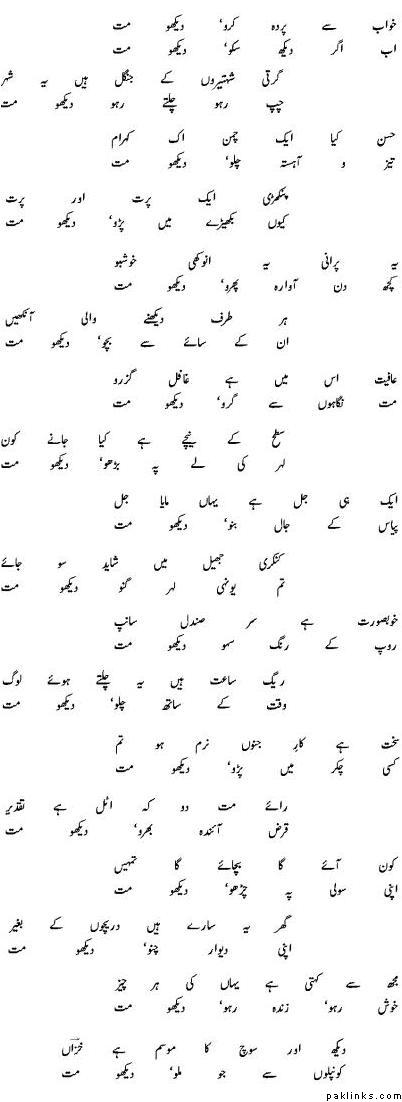 خواب سے پردہ کرو، دیکھو مت
اب اگر دیکھ سکو، دیکھو مت
گرتی شہتیروں کے جنگل ہیں یہ شہر
چپ رہو چلتے رہو دیکھو مت
حسن کیا ایک چمن اک کہرام
تیز و آہستہ چلو، دیکھو مت
پنکھڑی ایک پرت اور پرت
کیوں بکھیڑے میں پڑو، دیکھو مت
یہ پرانی یہ انوکھی خوشبو
کچھ دن آوارہ پھرو، دیکھو مت
ہر طرف دیکھنے والی آنکھیں
ان کے سائے سے بچو، دیکھو مت
عافیت اس میں ہے غافل گزرو
مت نگاہوں سے گرو، دیکھو مت
سطح کے نیچے ہے کیا جانے کون
لہر کی لے پہ بڑھو، دیکھو مت
ایک ہی جل ہے یہاں مایا جل
پیاس کے جال بنو، دیکھو مت
کنکری جھیل میں شاید سو جائے
تم یونہی لہر گنو دیکھو مت
خوبصورت ہے سر صندل سانپ
روپ کے رنگ سہو دیکھو مت
ریگ ساعت ہیں یہ چلتے ہوئے لوگ
وقت کے ساتھ چلو، دیکھو مت
سخت ہے کار جنوں نرم ہو تم
کسی چکر میں پڑو، دیکھو مت
رائے مت دو کہ اٹل ہے تقدیر
قرض آئندہ بھرو، دیکھو مت
کون آئے گا بچائے گا تمہیں
اپنی سولی پہ چڑھو، دیکھو مت
گھر یہ سارے ہیں دریچوں کے بغیر
اپنی دیوار چنو، دیکھو مت
مجھ سے کہتی ہے یہاں کی ہر چیز
خوش رہو، زندہ رہو، دیکھو مت
دیکھ اور سوچ کا موسم ہے خزاں
کونپلوں سے جو ملو، دیکھو مت
paklinks.com